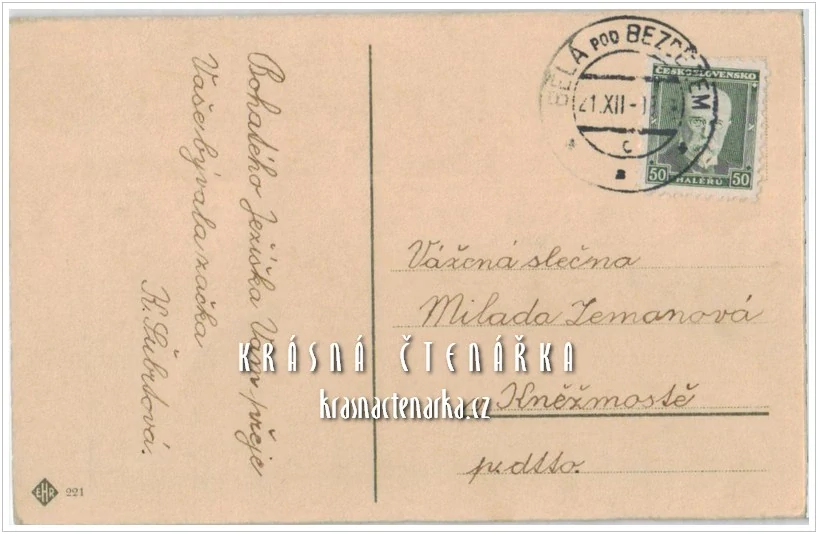 BĚLÁ POD BEZDĚZEM
21.XII
c
ČESKOSLOVENSKO
50 HALÉŘŮ 50
Bohatého Ježíška Vám přeje
Vaše bývala žačka
K. Šubrtová.
Vážená slečna
Milada Zemanová
KRÁSNÁ ČTENÁŘKA
krasnactenarka.cz
Kněžmostě
p. dtto.
EHR 221